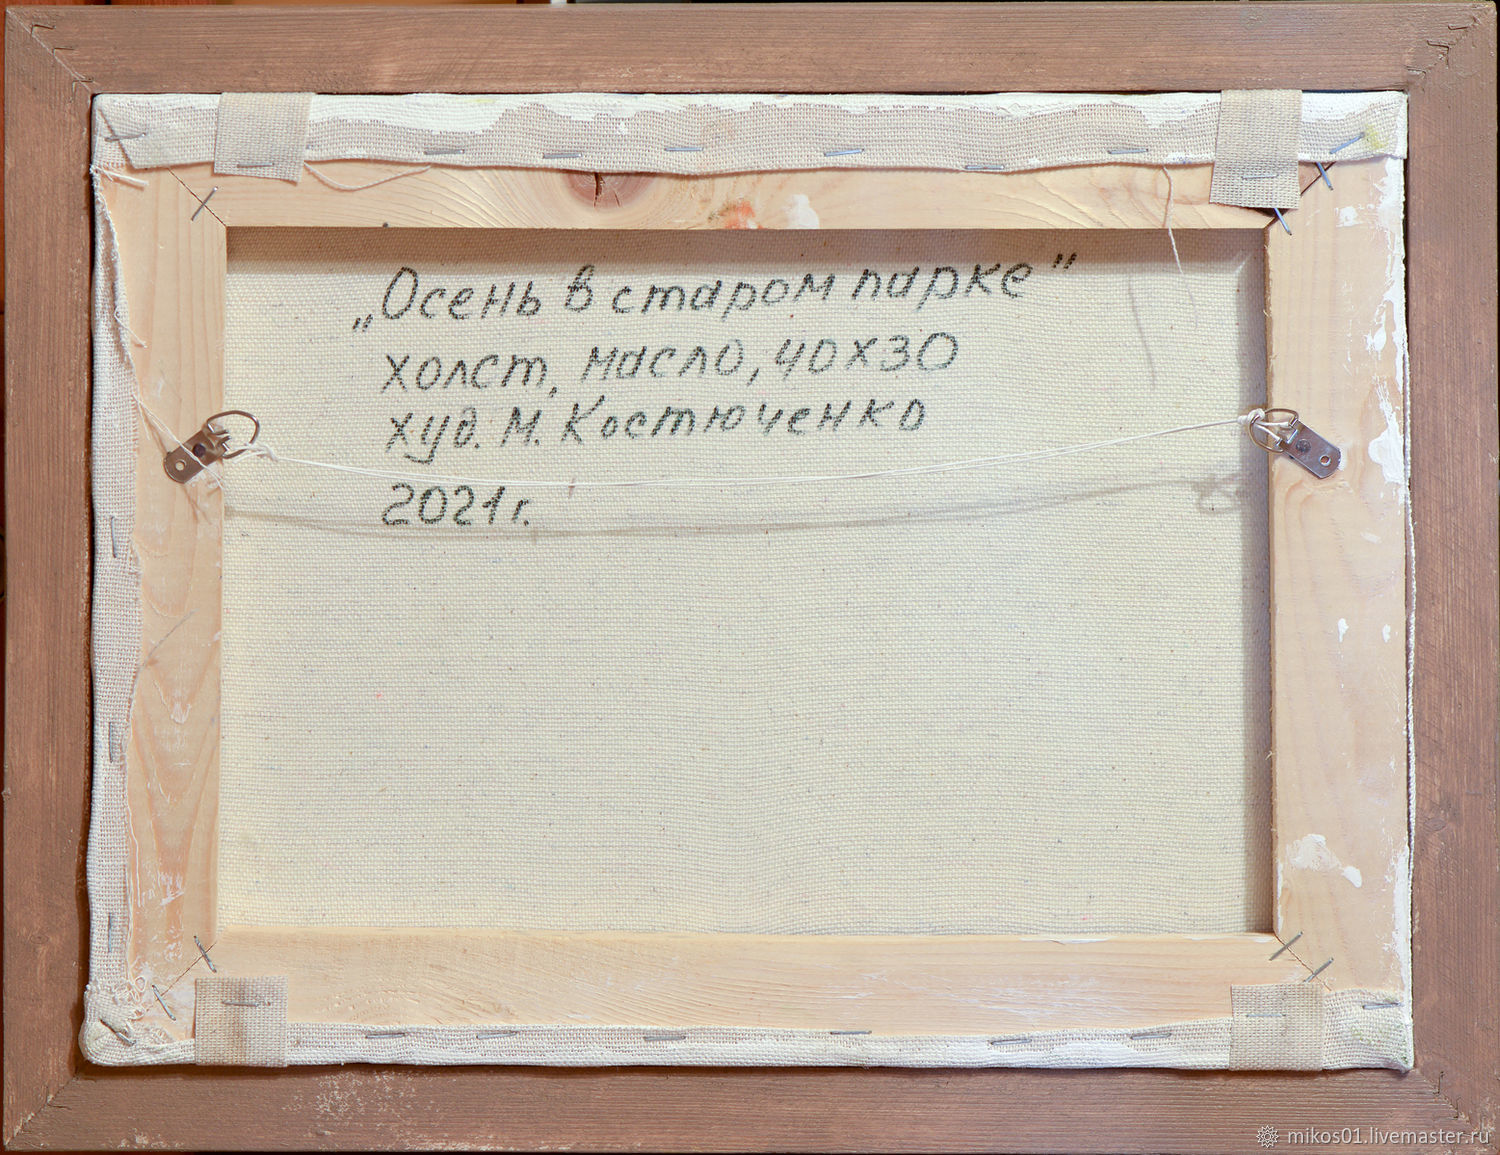 „Осень в старом парке”
холст, масло, 40х30
худ. М. Костюченко
2021г.
mikos01.livemaster.ru